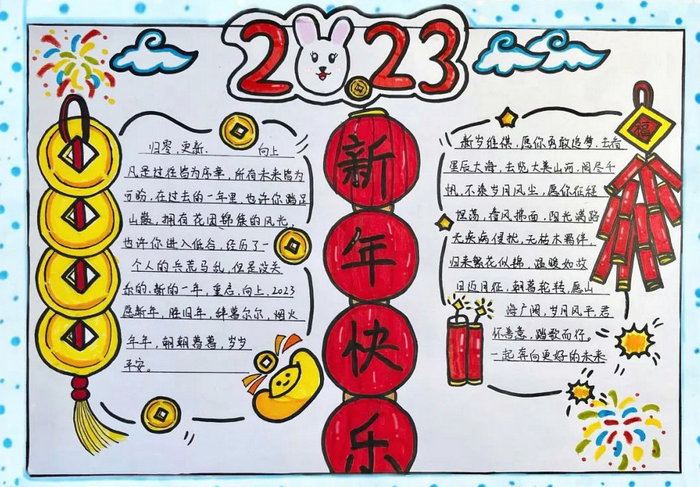 2023
新
年
快
乐
福
归零.更新. 向上
凡是过往皆为序章,所有未来皆为
可盼,在过去的一年里,也许你踏足
山巅,拥有花团锦簇的风光,
也许你进入低谷,经历了一
个人的兵荒马乱,但是没关
系的,新的一年,重启,向上,2023
愿新年,胜旧年,碎碎尔尔,烟火
年年,朝朝暮暮,岁岁
平安。
新岁维祺,愿你勇敢追梦,去看
星辰大海,去览大美山河,阅尽千
帆,不染岁月风尘,愿你在轻
松荡,春风拂面,阳光满路
无疾病侵扰,无枯木羁绊,
归来繁花似锦,温暖如故
日迈月征,朝暮轮转,愿山
海广阔,岁月风平,君
怀善意,踏歌而行,
一起奔向更好的未来